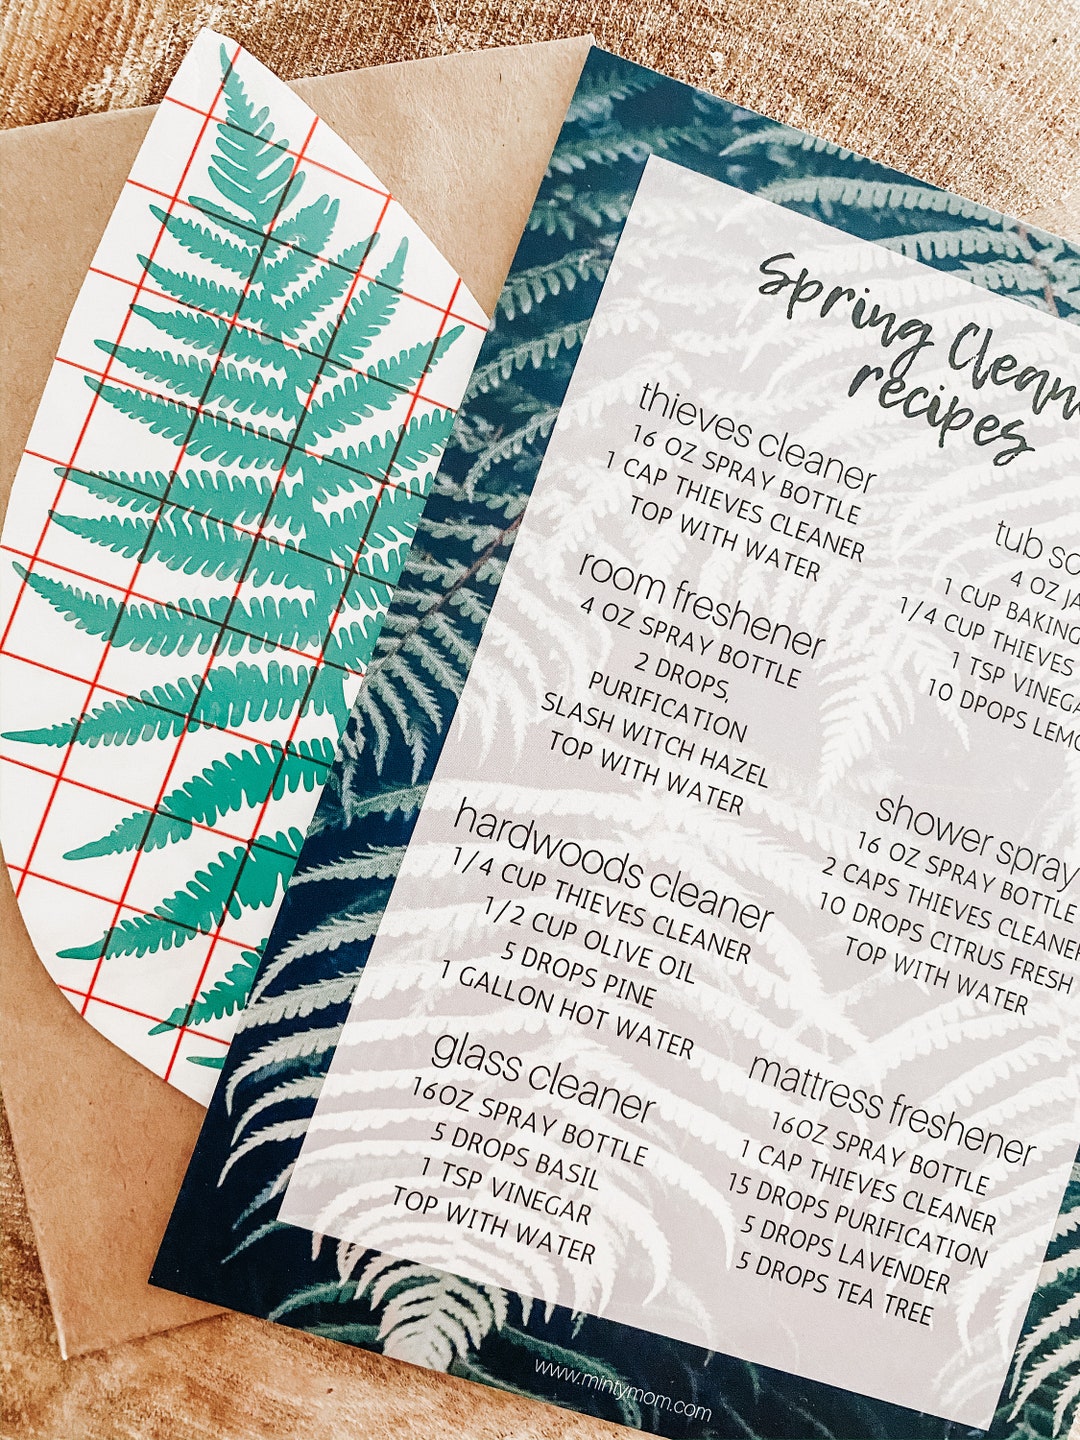 Spring Clean
recipes
thieves cleaner
16 OZ SPRAY BOTTLE
1 CAP THIEVES CLEANER
TOP WITH WATER
room freshener
4 OZ SPRAY BOTTLE
2 DROPS,
PURIFICATION
SLASH WITCH HAZEL
TOP WITH WATER
hardwoods cleaner
1/4 CUP THIEVES CLEANER
1/2 CUP OLIVE OIL
5 DROPS PINE
1 GALLON HOT WATER
glass cleaner
16OZ SPRAY BOTTLE
5 DROPS BASIL
1 TSP VINEGAR
TOP WITH WATER
tub
4 OZ
1 CUP BAKING
1/4 CUP THIEVES
1 TSP VINEGA
10 DPOPS LEMO
shower spray
16 OZ SPRAY BOTTLE
2 CAPS THIEVES CLEANER
10 DROPS CITRUS FRESH
TOP WITH WATER
mattress freshener
16OZ SPRAY BOTTLE
1 CAP THIEVES CLEANER
15 DROPS PURIFICATION
5 DROPS LAVENDER
5 DROPS TEA TREE
www.mintymom.com